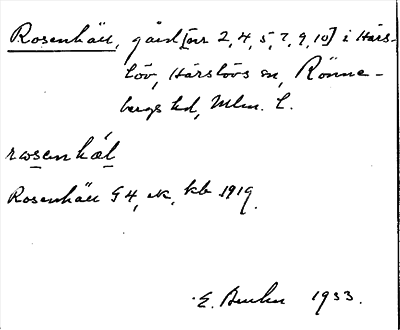 Rosenhäll, gård [nr 2, 4, 5, 7, 9, 10] i Härs-
löv, Härslövs sn, Rönne-
bergs hd, Mlm. l.
rosenhæl
Rosenhäll G4, ek, kb 1919.
E. 1933.